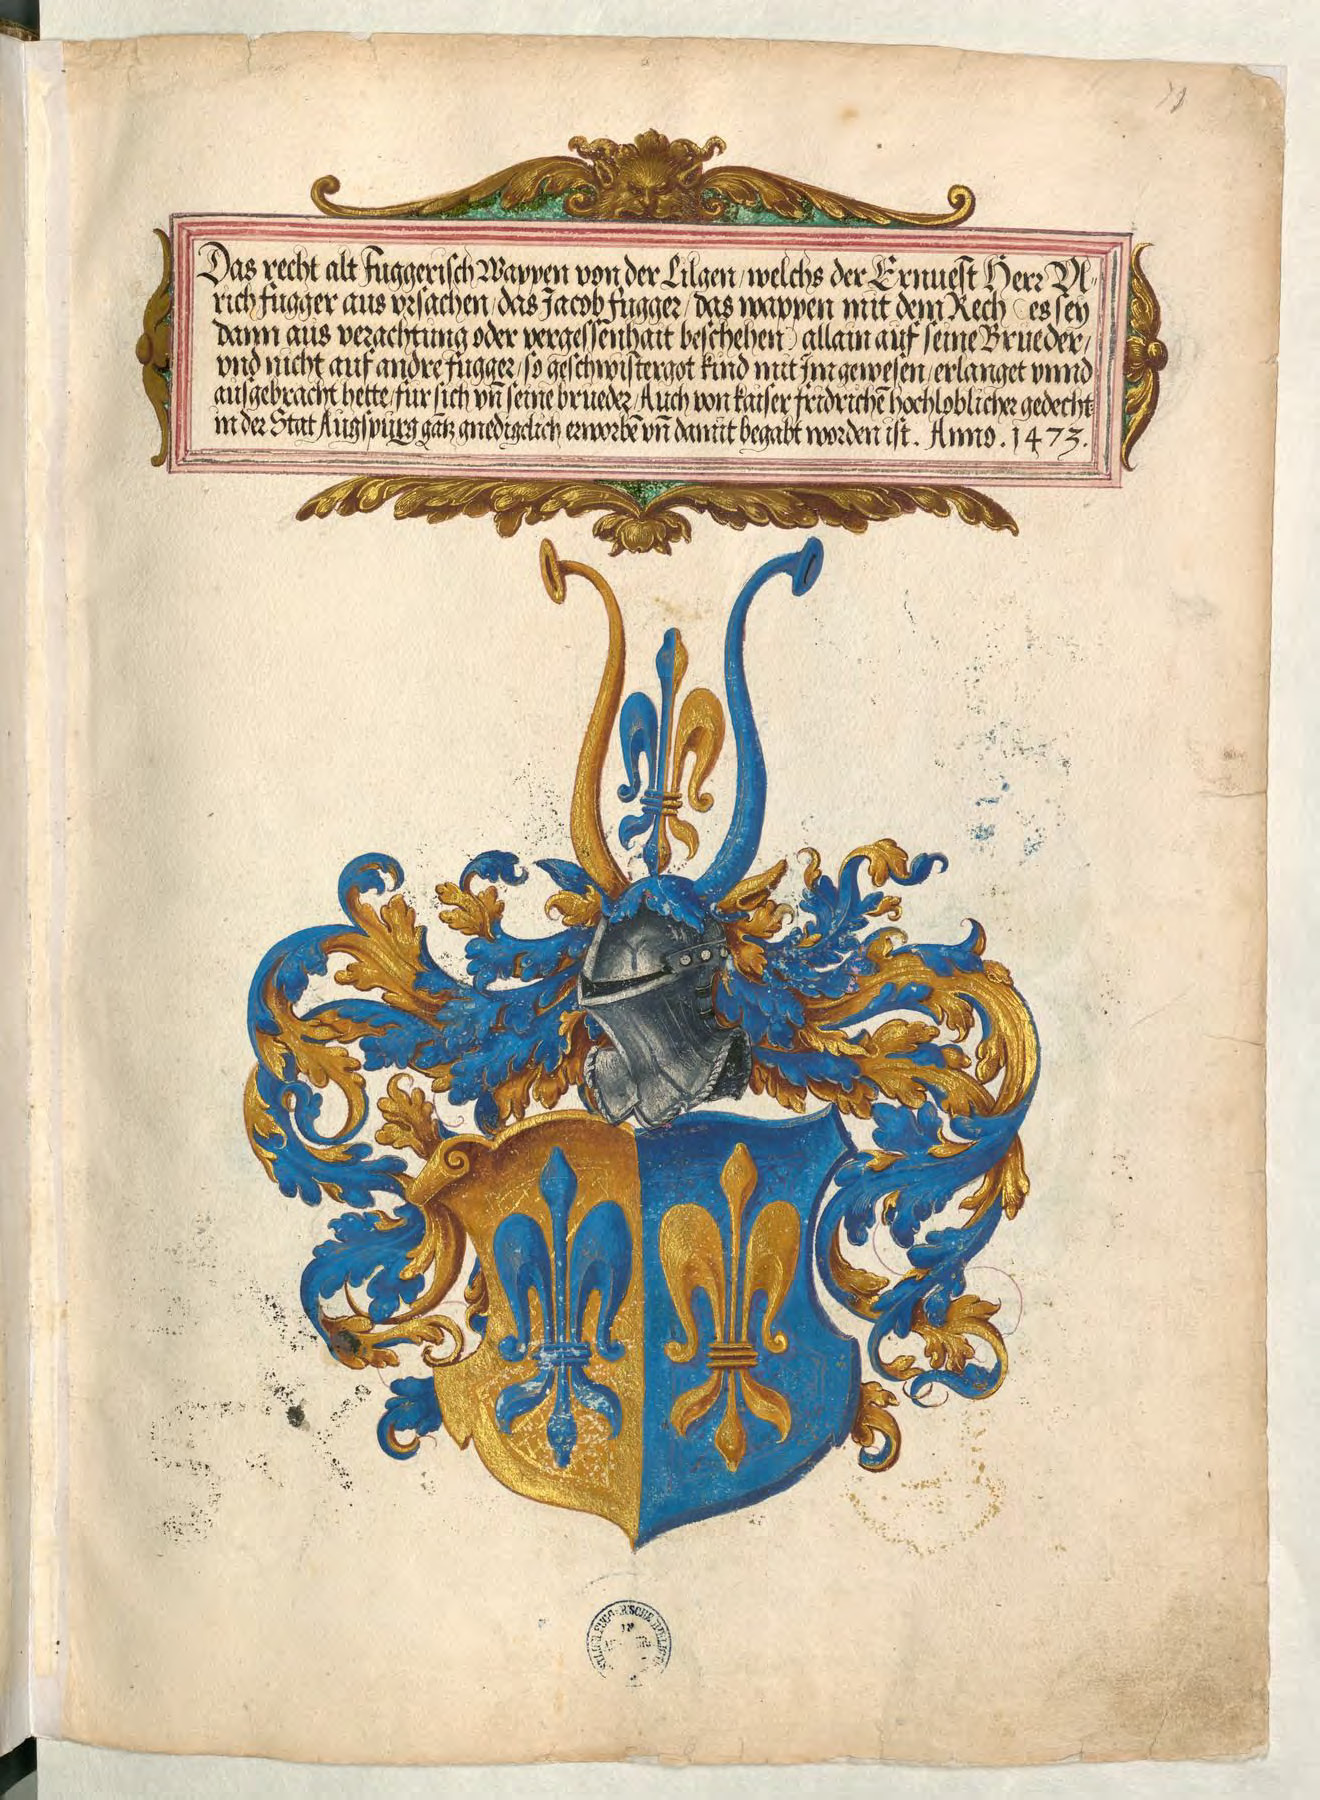 Das recht alt Fuggerisch Wappen von der Lilgen / welchs der Ernuest Herr Vl-
rich Fugger aus vrsachen / das Jacob Fugger / das wappen mit dem Rech (es sey
dann aus verachtung oder vergessenhait beschehen) allain auf seine Brueder /
vnd nicht auf andre Fugger / so geschwistergot kind mit Im gewesen / erlanget vnnd
ausgebracht hette / fur sich vñ seine brueder / Auch von kaiser fridrichē hochloblicher gedecht:
in der Stat Augspurg gātz gnedigclich erworbē vñ damit begabt worden ist. Anno. 1473.